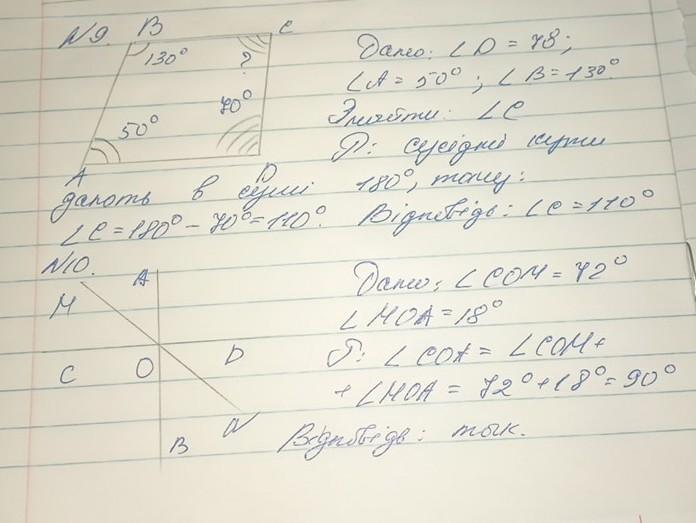 N9. B C
130° ?
70°
50°
A D
Дано: ∠D = 78;
∠A = 50°; ∠B = 130°
Знайти: ∠C
Р: сусідні кути
дають в сумі 180°, тому:
∠C = 180° - 70° = 110°. Відповідь: ∠C = 110°
N10.
M A
C O D
B N
Дано: ∠COM = 72°
∠MOA = 18°
Р: ∠COA = ∠COM +
+ ∠MOA = 72° + 18° = 90°
Відповідь: так.